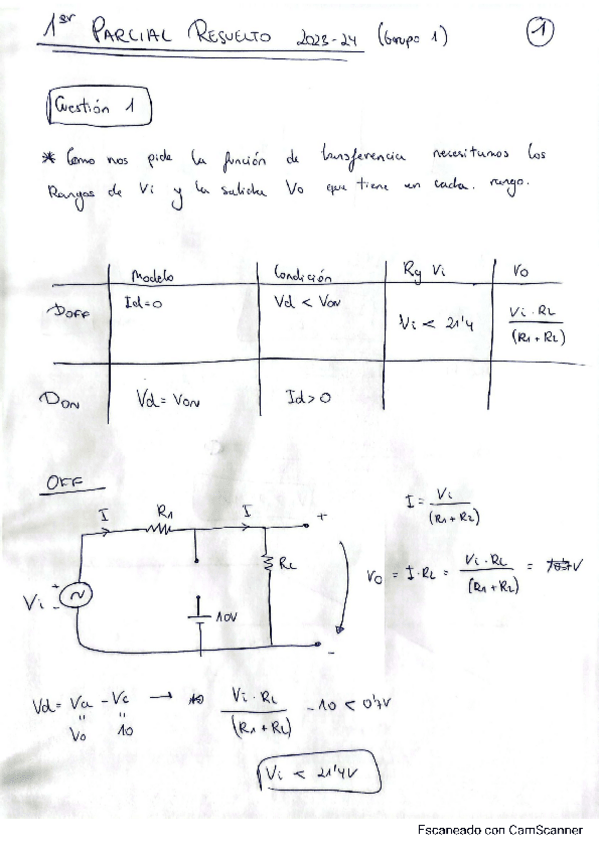 1er PARCIAL RESUELTO 2023-24 (Grupo 1) 1
Cuestión 1
* Como nos pide la función de transferencia necesitamos los
Rangos de Vi y la salida Vo que tiene en cada rango.
Modelo Condición Rg Vi Vo
DOFF Id=0 Vd < VON Vi < 21'4 Vi · RL / (R1 + RL)
DON Vd = VON Id > 0
OFF
I R1 I +
RL
Vi + - 10V
-
I = Vi / (R1 + RL)
Vo = I · RL = Vi · RL / (R1 + RL) =
Vd = Va - Vc → Vi · RL / (R1 + RL) - 10 < 0'7V
Vo 10
Vi < 21'4V
Escaneado con CamScanner